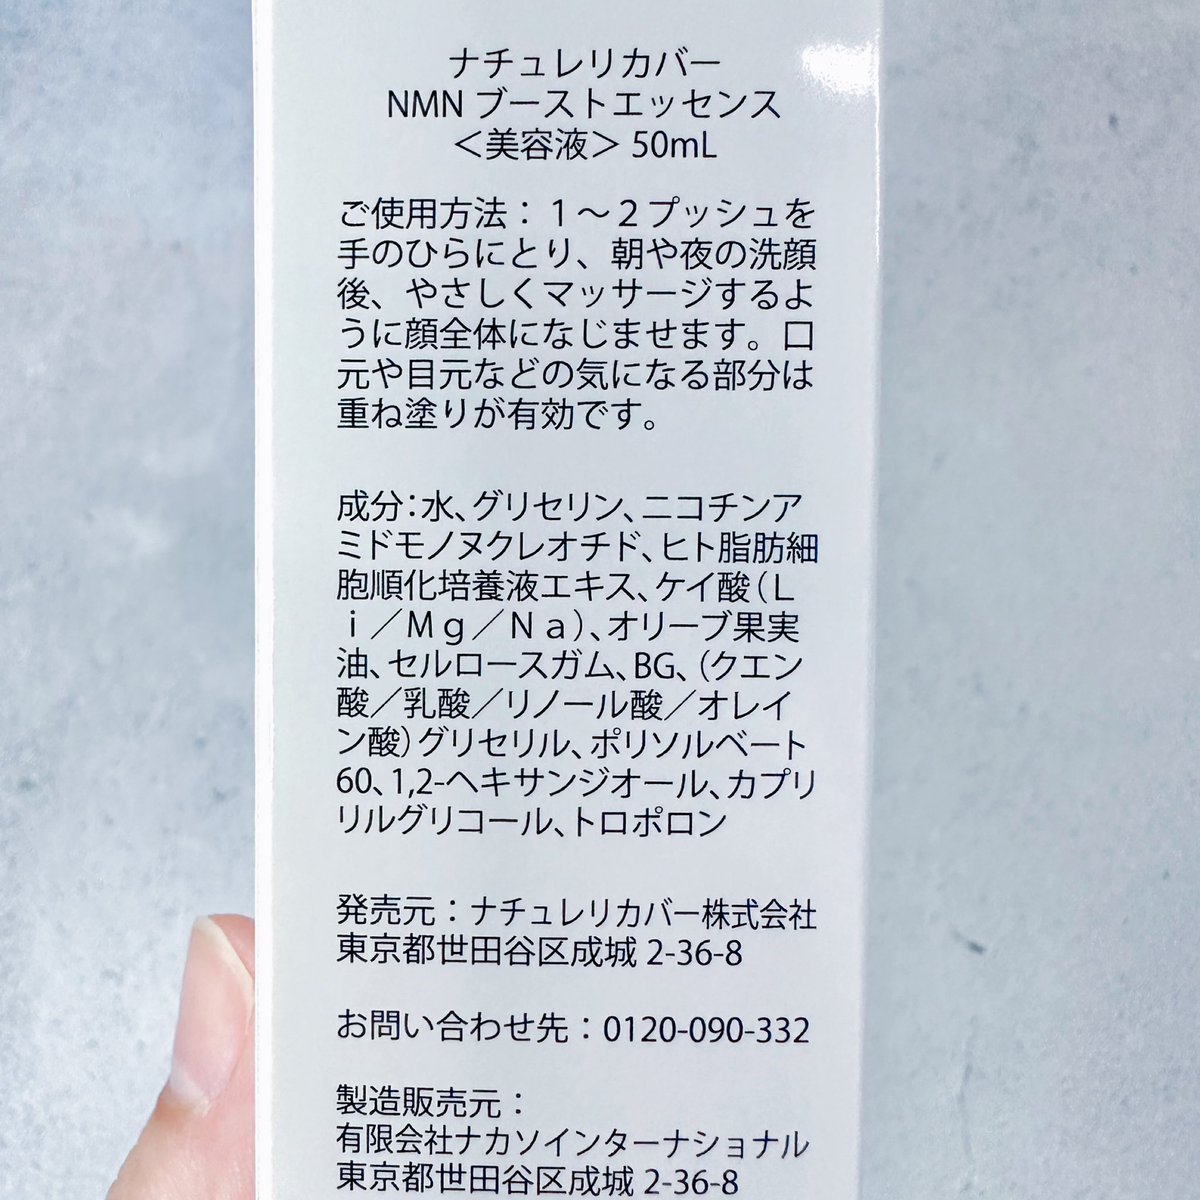 ナチュレリカバー
NMN ブーストエッセンス
＜美容液＞ 50mL
ご使用方法：１～２プッシュを
手のひらにとり、朝や夜の洗顔
後、やさしくマッサージするよ
うに顔全体になじませます。口
元や目元などの気になる部分は
重ね塗りが有効です。
成分：水、グリセリン、ニコチンア
ミドモノヌクレオチド、ヒト脂肪細
胞順化培養液エキス、ケイ酸（Ｌ
ｉ／Ｍｇ／Ｎａ）、オリーブ果実
油、セルロースガム、BG、（クエン
酸／乳酸／リノール酸／オレイ
ン酸）グリセリル、ポリソルベート
60、1,2-ヘキサンジオール、カプリ
リルグリコール、トロポロン
発売元：ナチュレリカバー株式会社
東京都世田谷区成城 2-36-8
お問い合わせ先：0120-090-332
製造販売元：
有限会社ナカソインターナショナル
東京都世田谷区成城 2-36-8